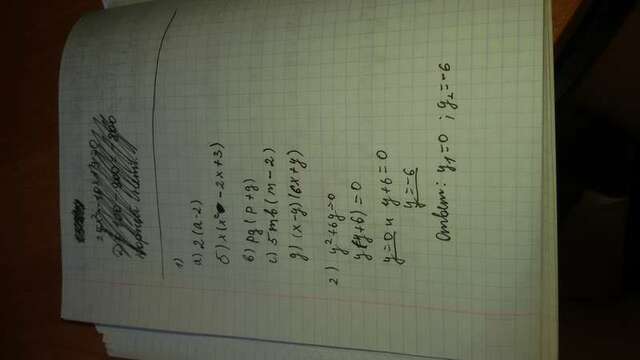 1)
а) 2(a-2)
б) x(x² - 2x+3)
в) pg(p+g)
с) 5mb(m-2)
д) (x-y)(6x+y)
2) y²+6y=0
y(y+6)=0
y=0 и y+6=0
y=-6
Ответ: y₁=0 ; y₂=-6